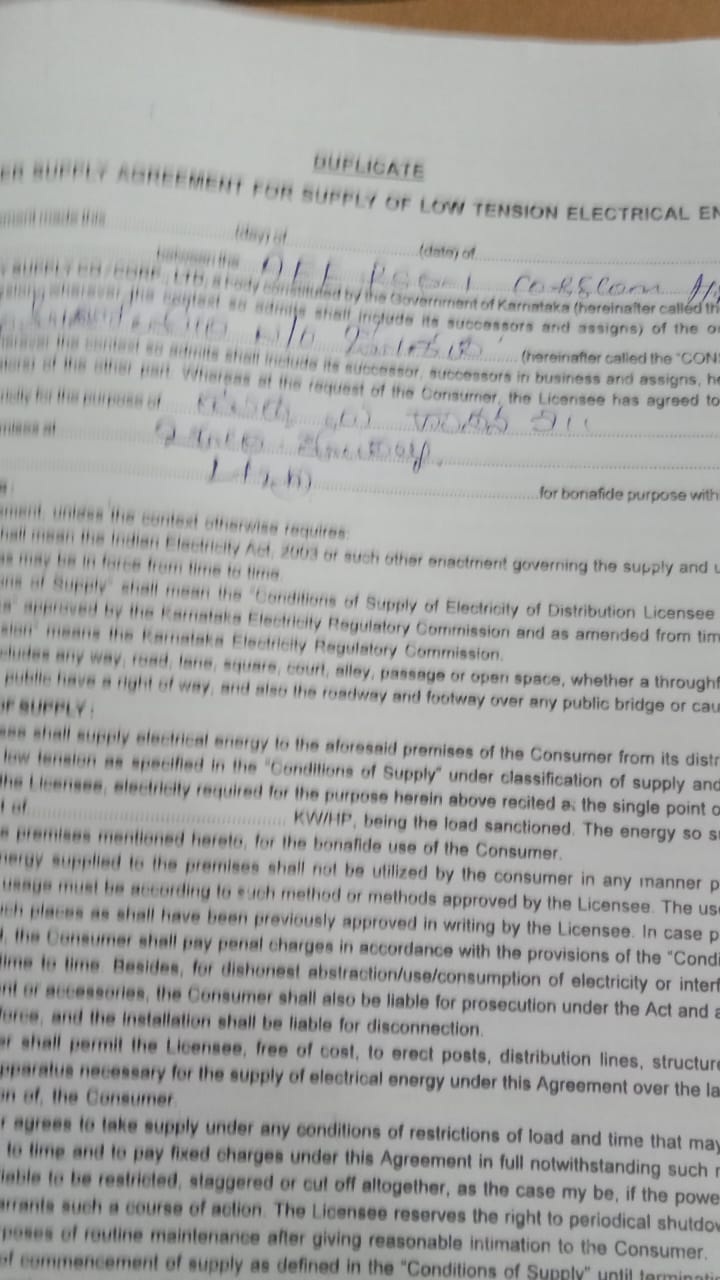 DUPLICATE
SUPPLY AGREEMENT FOR SUPPLY OF LOW TENSION ELECTRICAL EN
made this (day) of (date) of
between the
a body constituted by the Government of Karnataka (hereinafter called th
wherever the context so admits shall include its successors and assigns) of the o
W/o (hereinafter called the "CON
the context so admits shall include its successor, successors in business and assigns, he
of the other part. Whereas at the request of the Consumer, the Licensee has agreed to
for the purpose of
at
for bonafide purpose with
unless the context otherwise requires:
shall mean the Indian Electricity Act, 2003 or such other enactment governing the supply and u
as may be in force from time to time.
of Supply" shall mean the "Conditions of Supply of Electricity of Distribution Licensee
approved by the Karnataka Electricity Regulatory Commission and as amended from tim
means the Karnataka Electricity Regulatory Commission.
any way, road, lane, square, court, alley, passage or open space, whether a throughf
public have a right of way, and also the roadway and footway over any public bridge or cau
OF SUPPLY :
shall supply electrical energy to the aforesaid premises of the Consumer from its distr
low tension as specified in the "Conditions of Supply" under classification of supply and
the Licensee, electricity required for the purpose herein above recited at the single point o
of KW/HP, being the load sanctioned. The energy so s
premises mentioned hereto, for the bonafide use of the Consumer.
nergy supplied to the premises shall not be utilized by the consumer in any manner p
usage must be according to such method or methods approved by the Licensee. The use
ch places as shall have been previously approved in writing by the Licensee. In case p
the Consumer shall pay penal charges in accordance with the provisions of the "Condi
time to time. Besides, for dishonest abstraction/use/consumption of electricity or interf
nt or accessories, the Consumer shall also be liable for prosecution under the Act and a
force, and the Installation shall be liable for disconnection.
er shall permit the Licensee, free of cost, to erect posts, distribution lines, structure
pparatus necessary for the supply of electrical energy under this Agreement over the la
n of, the Consumer.
r agrees to take supply under any conditions of restrictions of load and time that may
to time and to pay fixed charges under this Agreement in full notwithstanding such r
liable to be restricted, staggered or cut off altogether, as the case my be, if the powe
arrants such a course of action. The Licensee reserves the right to periodical shutdow
poses of routine maintenance after giving reasonable intimation to the Consumer.
of commencement of supply as defined in the "Conditions of Supply" until